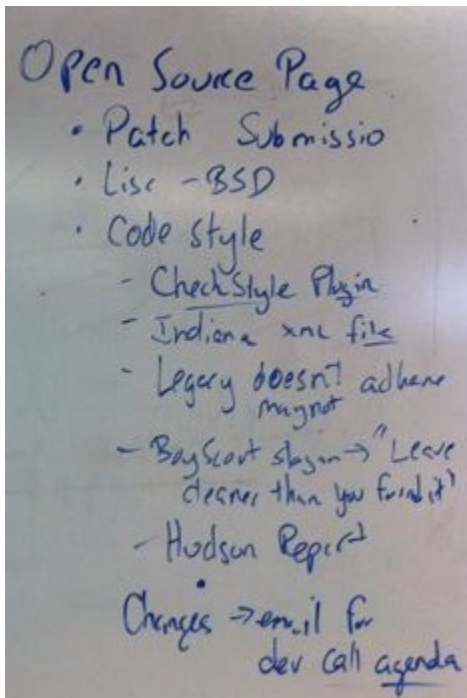 Open Source Page
• Patch Submissio
• Lisc - BSD
• Code style
- CheckStyle Plugin
- Indiana xml file
- Legacy doesn't adhere
may not
- BoyScout slogan → "Leave
cleaner than you found it"
- Hudson Report
•
Changes → email for
dev call agenda